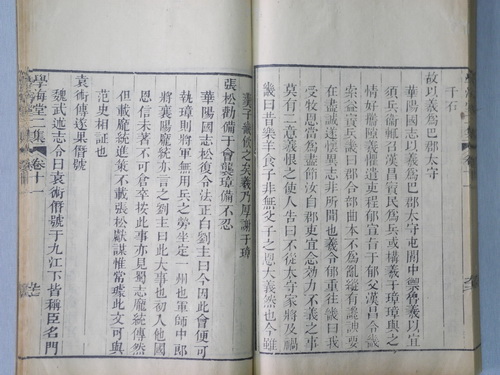 千石
故以羲為巴郡太守
華陽國志以羲為巴郡太守屯閬中禦魯羲以宜
須兵衞輒召漢昌賨民為兵或構羲于璋璋與之
情好攜隙羲懼遣吏程郁宣旨于郁父漢昌令畿
索益賨兵畿曰郡合部曲本不為亂縱有讒諛要
在盡誠遂懷異志非所聞也羲令郁重往畿曰我
受牧恩當為盡節汝自郡吏宜念効力不義之事
莫有二意羲恨之使人告曰不從太守家將及禍
畿曰昔樂羊食子非無父子之恩大義然也今雖
羹子畿飲之矣羲乃厚謝于璋
張松勸備于會襲璋備不忍
華陽國志松復令法正白劉主曰今因此會便可
執璋則將軍無用兵之勞坐定一州也軍師中郎
將襄陽龐統亦言之劉主曰此大事也初入他國
恩信未著不可倉卒按此事亦見蜀志龐統傳然
但載龐統進策不載張松獻謀惟常璩此文可與
范史相証也
袁術傳遂果僭號
魏武述志令曰袁術僭號于九江下皆稱臣名門
學海堂集 卷十一